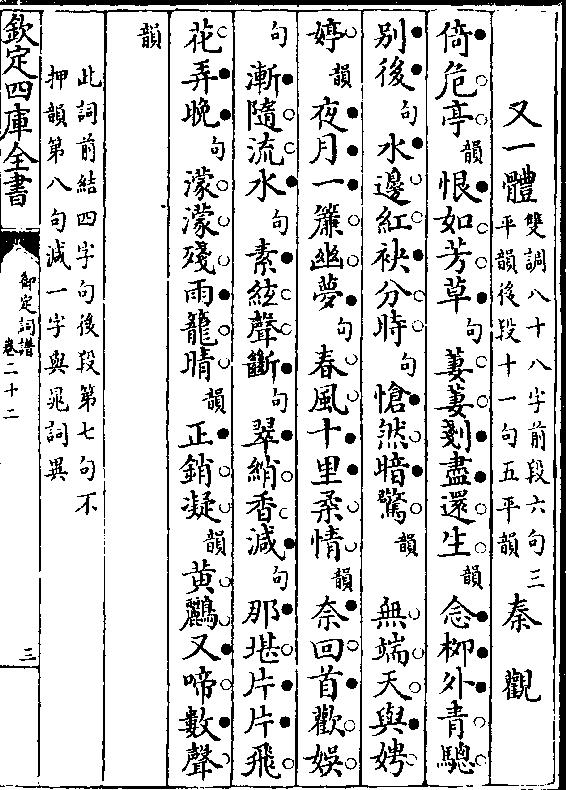 又一體雙調八十八字前段六句三平韻後段十一句五平韻 秦觀
倚危亭韻恨如芳草句萋萋剗盡還生韻念柳外青驄
别後句水邊紅袂分時句愴然暗驚韻 無端天與娉
婷韻夜月一簾幽夢句春風十里柔情韻奈回首歡娛
句漸隨流水句素絃聲斷句翠綃香減句那堪片片飛
花弄晚句濛濛殘雨籠晴韻正銷凝韻黄鸝又啼數聲
韻
此詞前結四字句後段第七句不
押韻第八句減一字與晁詞異
欽定四庫全書
御定詞譜
卷二十二
三